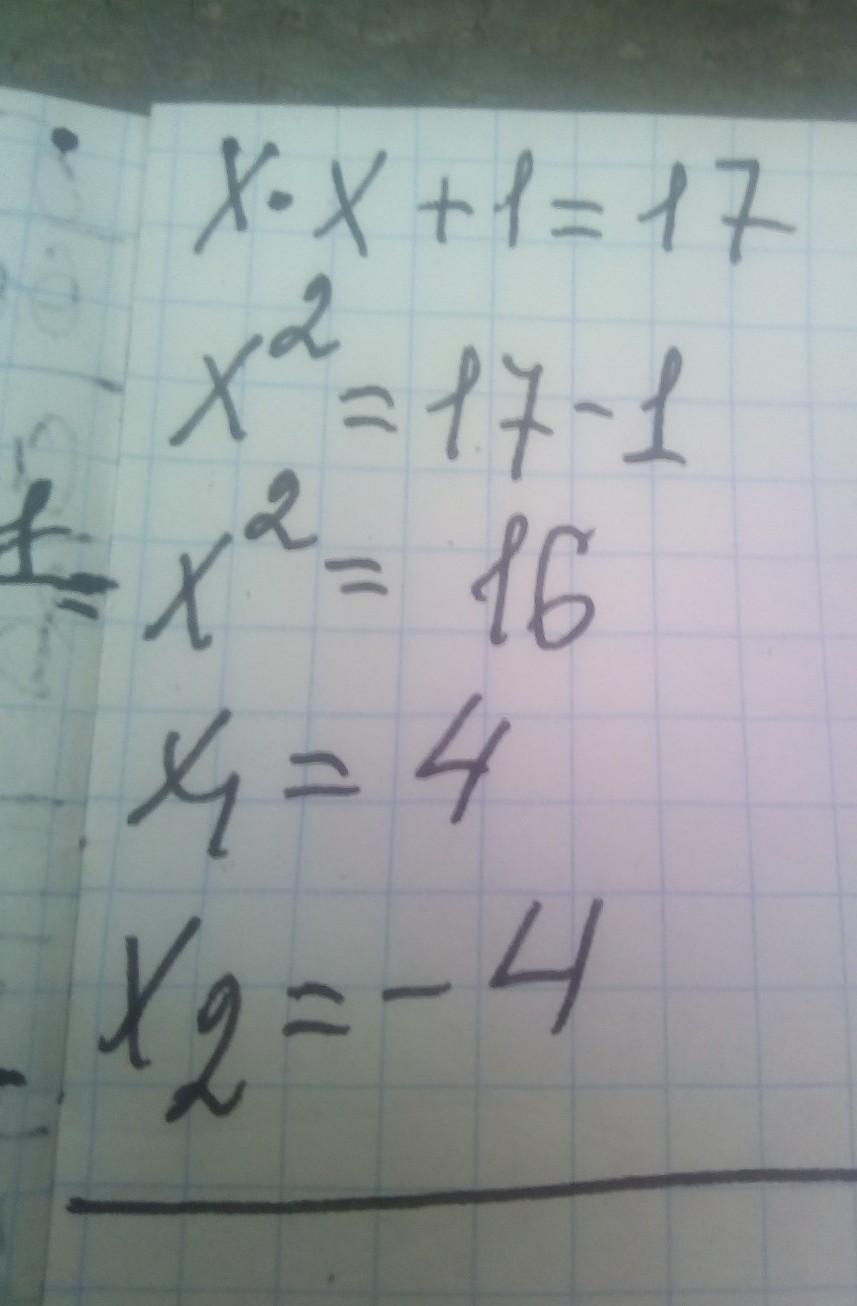 x · x + 1 = 17
x² = 17 - 1
x² = 16
x₁ = 4
x₂ = - 4